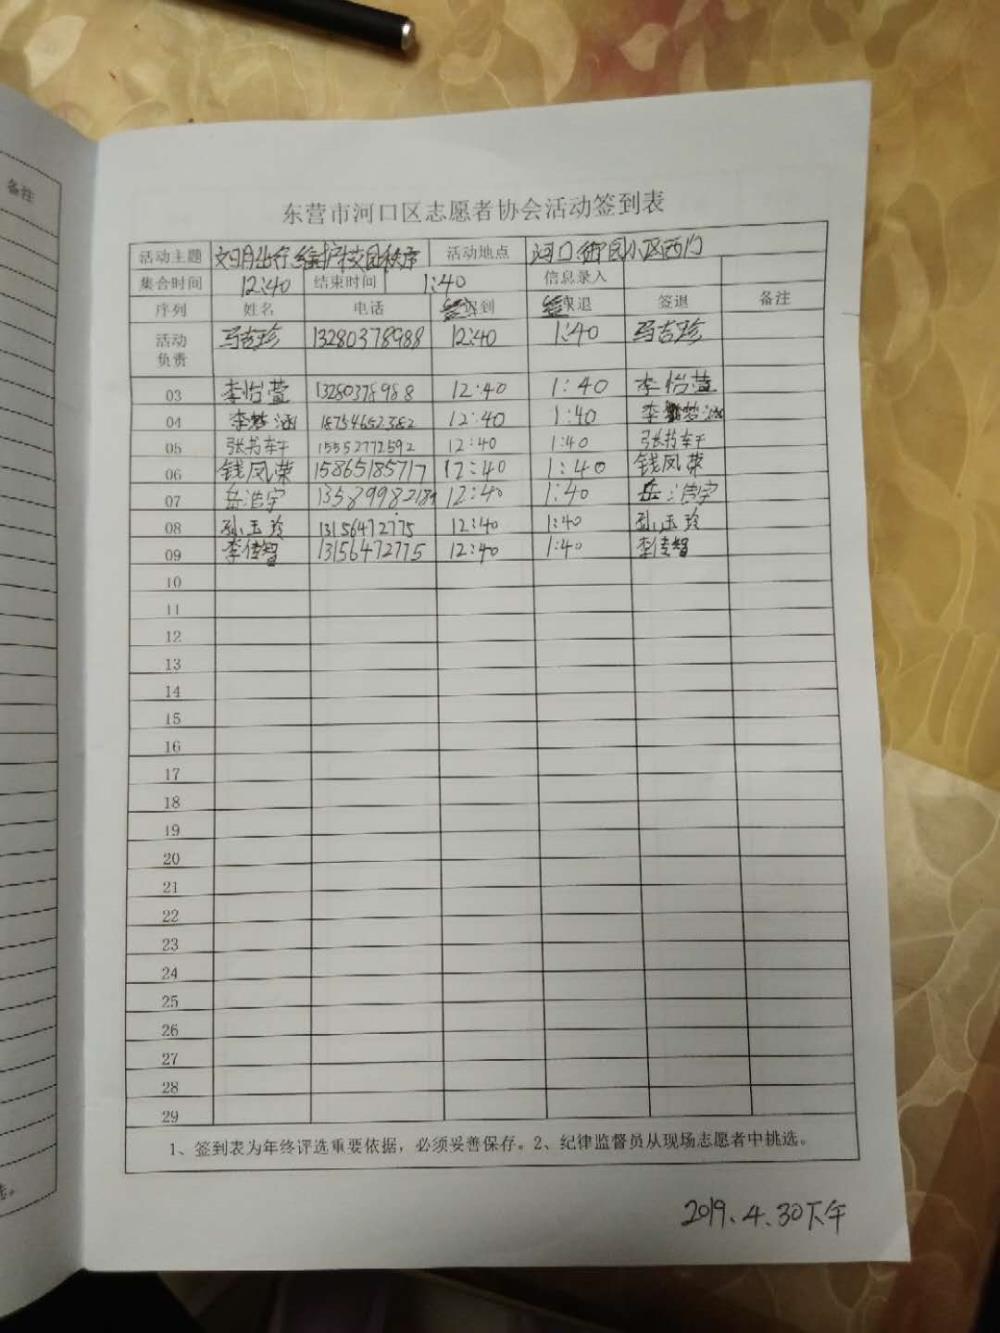 备注
东营市河口区志愿者协会活动签到表
活动主题 文明出行 维护校园秩序 活动地点 河口御园小区西门
集合时间 12:40 结束时间 1:40 信息录入
序列 姓名 电话 签到 签退 签退 备注
活动负责 马吉珍 13280378988 12:40 1:40 马吉珍
03 李怡萱 13280378988 12:40 1:40 李怡萱
04 李梦涵 18754652382 12:40 1:40 李梦涵
05 张书车干 15552772592 12:40 1:40 张书车干
06 钱凤荣 15865185717 12:40 1:40 钱凤荣
07 岳浩宇 12:40 1:40 岳浩宇
08 孙玉玲 13156472775 12:40 1:40 孙玉玲
09 李佳智 13156472775 12:40 1:40 李佳智
10
11
12
13
14
15
16
17
18
19
20
21
22
23
24
25
26
27
28
29
1、签到表为年终评选重要依据，必须妥善保存。2、纪律监督员从现场志愿者中挑选。
2019.4.30下午